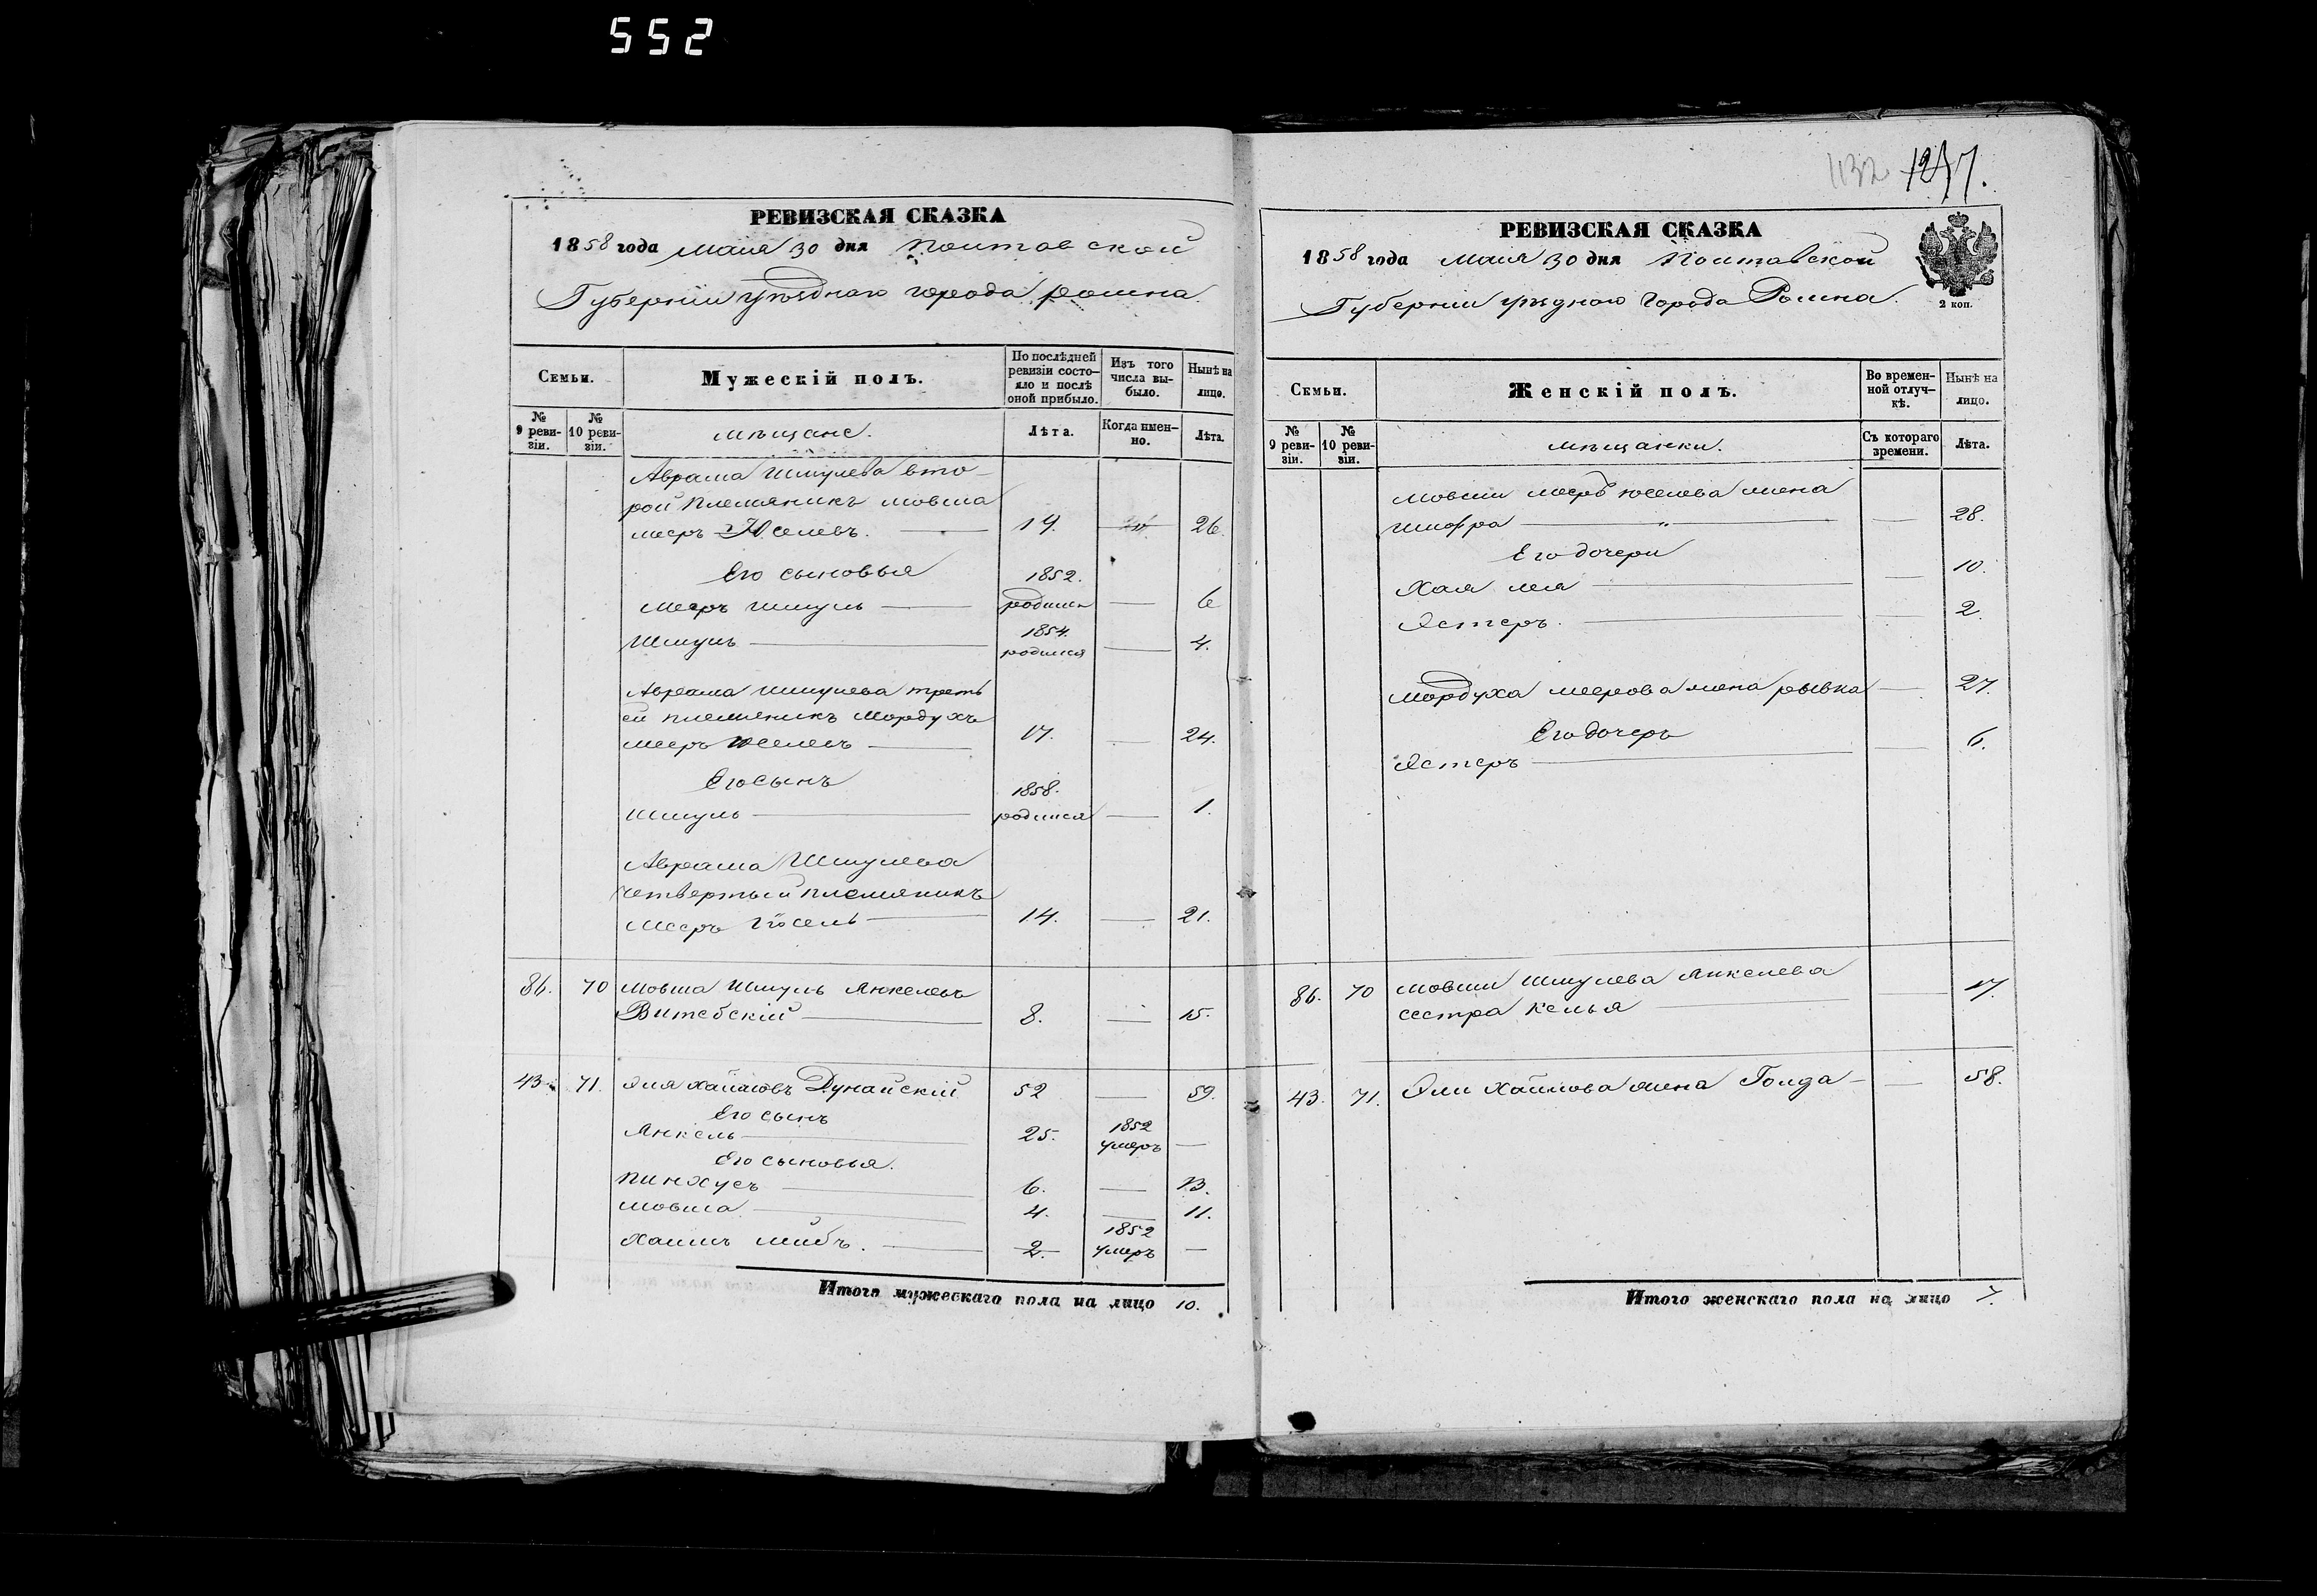 552
РЕВИЗСКАЯ СКАЗКА
1858 года Маия 30 дня Полтавской
Губернии уѣзднаго города ромна.
Семьи.
Мужескій полъ.
По послѣдней ревизіи состо-
яло и послѣ оной прибыло.
Изъ того числа вы-
было.
Нынѣ на лицо.
№ 9 реви-
зіи.
№ 10 реви-
зіи.
мѣщане.
Лѣта.
Когда имен-
но.
Лѣта.
Абрама Шмулева вто-
рой племяникъ мовша
меръ Юселевъ. 19. 26.
Его сыновья 1852.
меръ шмуль родился 6
Шмуль 1854. родился 4.
Абрама шмулева треть
ей племяникъ Мордухъ
мееръ Юселевъ 17. 24.
Его сынъ 1858.
шмуль родился 1.
Абрама Шмулева
четвертый племяникъ
Мееръ Iосель 14. 21.
86. 70 Мовша Шмуль Янкелевъ
Витебскій 8. 15.
43. 71. Эля Хаимовъ Дунайскій 52 59.
Его сынъ
Янкель 25. 1852 умеръ
Его сыновья.
Пинхусъ 6. 13.
Мовша 4. 11.
Хаимъ лейбъ. 2. 1852 умеръ
Итого мужескаго пола на лицо 10.
1132 1247.
РЕВИЗСКАЯ СКАЗКА
1858 года Маия 30 дня Полтавской
Губерніи уѣзднаго Города Ромна.
2 коп.
Семьи.
Женскій полъ.
Во времен-
ной отлуч-
кѣ.
Нынѣ на лицо.
№ 9 реви-
зіи.
№ 10 реви-
зіи.
мѣщанки.
Съ котораго времени.
Лѣта.
Мовши меръ юселева жена
Шифра „ 28.
Его дочери
Хая лея 10.
Эстеръ. 2.
Мордуха меерова жена рывка 27.
Его дочеръ
Эстеръ 6.
86. 70 Мовши Шмулева Янкелева
сестра Келья 17.
43. 71. Эли Хаимова жена Голда 58.
Итого женскаго пола на лицо 7.